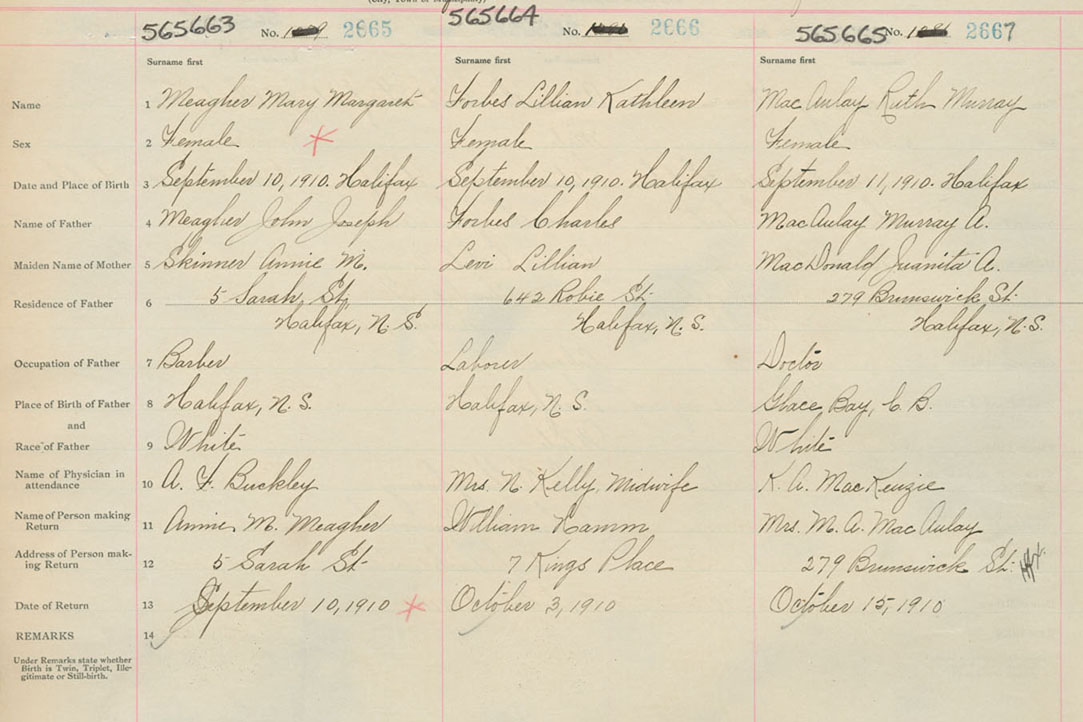 (City, Town or Municipality)
565663 No. 2665
565664 No. 2666
565665 No. 2667
Surname first Surname first Surname first
Name 1 Meagher Mary Margaret Forbes Lillian Kathleen MacAulay Ruth Murray
Sex 2 Female Female Female
Date and Place of Birth 3 September 10, 1910. Halifax September 10, 1910. Halifax September 11, 1910. Halifax
Name of Father 4 Meagher John Joseph Forbes Charles MacAulay Murray A.
Maiden Name of Mother 5 Skinner Annie M. Levi Lillian MacDonald Juanita A.
Residence of Father 6 5 Sarah St. 642 Robie St. 279 Brunswick St.
Halifax, N.S. Halifax, N.S. Halifax, N.S.
Occupation of Father 7 Barber Laborer Doctor
Place of Birth of Father 8 Halifax, N.S. Halifax, N.S. Glace Bay, C.B.
and
Race of Father 9 White White
Name of Physician in
attendance 10 A. F. Buckley Mrs. N. Kelly, Midwife K. A. MacKenzie
Name of Person making
Return 11 Annie M. Meagher William Hamm Mrs. M. A. MacAulay
Address of Person mak-
ing Return 12 5 Sarah St. 7 Kings Place 279 Brunswick St. Hfx.
Date of Return 13 September 10, 1910 October 3, 1910 October 15, 1910
REMARKS 14
Under Remarks state whether
Birth is Twin, Triplet, Ille-
gitimate or Still-birth.